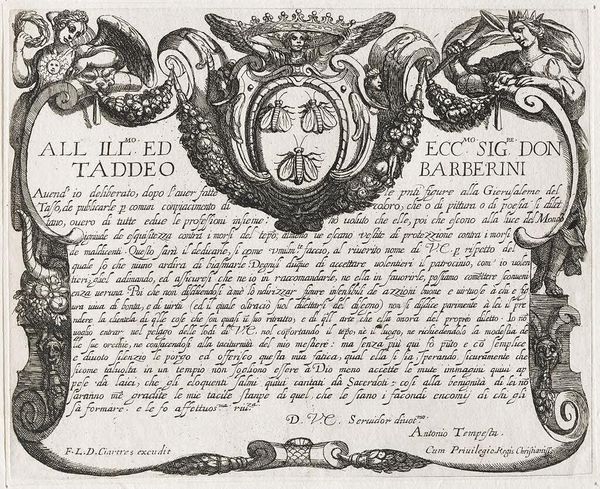 ALL ILL.MO ED ECC.MO SIG.RE DON
TADDEO BARBERINI
Auend' io deliberato, dopo l'auer fatte le pnti figure alla Gierusaleme del
Tasso, de publicarle p comun compiacimento di coloro, che o di pittura o di poesia si dilet
tano, ouero di tutte edue le professioni insieme; ho uoluto che elle, poi che escono alla luce del Mondo
di esquisitezza contra i morsi del tepo, almeno ue escano uestite di protezzione contra i morsi
de maldicenti. Questo sarà il dedicarle, si come umilm.te faccio, al riuerito nome di V.E. p rispetto del
quale so che niuno ardirà di biasmarle. Degnisi dunque di accettare uolentieri il patrocinio, con' io uolen
tieri quel adimando, ed assicurisi che ne io in raccomandarle, ne ella in fauorirle, possiamo comettere conueni
enza ueruna. Poi che non disdicendosi a me lo indirizzar figure intendenti de azzioni buone e uirtuose à chi è fi
gura uiua di bontà, e di uirtù (ed il quale oltraciò suol dilettarsi del disegno) non si disdice parimente à lei il pren
dere la clientela di qlle cose che son quasi il suo ritratto, e di qll' arte che ella onora del proprio diletto. Io nō
uoglio entrar nel pelago delle lodi di V.E. nol comportando il tepo, nè il luogo, ne richiedendolo la modestia de
le sue orecchie, ne confacendosi alla taciturnità del mio mestiere: ma senza più qui fo puto e cō semplice
e diuoto silenzio le porgo ed offerisco questa mia fatica, qual ella si sia. Sperando sicuramente che
sicome taluolta in un tempio non sogliono essere à Dio meno accette le mute immagini quiui ap
pese da laici, che gli eloquenti salmi quiui cantati da Sacerdoti; così alla benignità di lei nō
saranno mē gradite le mie tacite stampe di quel, che le siano i facondi encomij di chi gli
sa formare. e le fo affettuos.ma riu.za
D. V.E. Seruidor diuot.mo
Antonio Tempesta.
F. L. D. Ciartres excudit Cum Priuilegio Regis Christianiss.